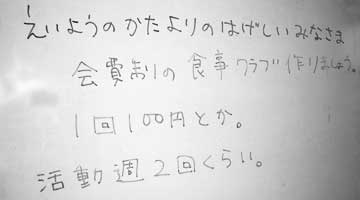 えいようのかたよりのはげしいみなさま
会費制りの食事クラブ作りましょう。
1回100円とか。
活動週2回くらい。